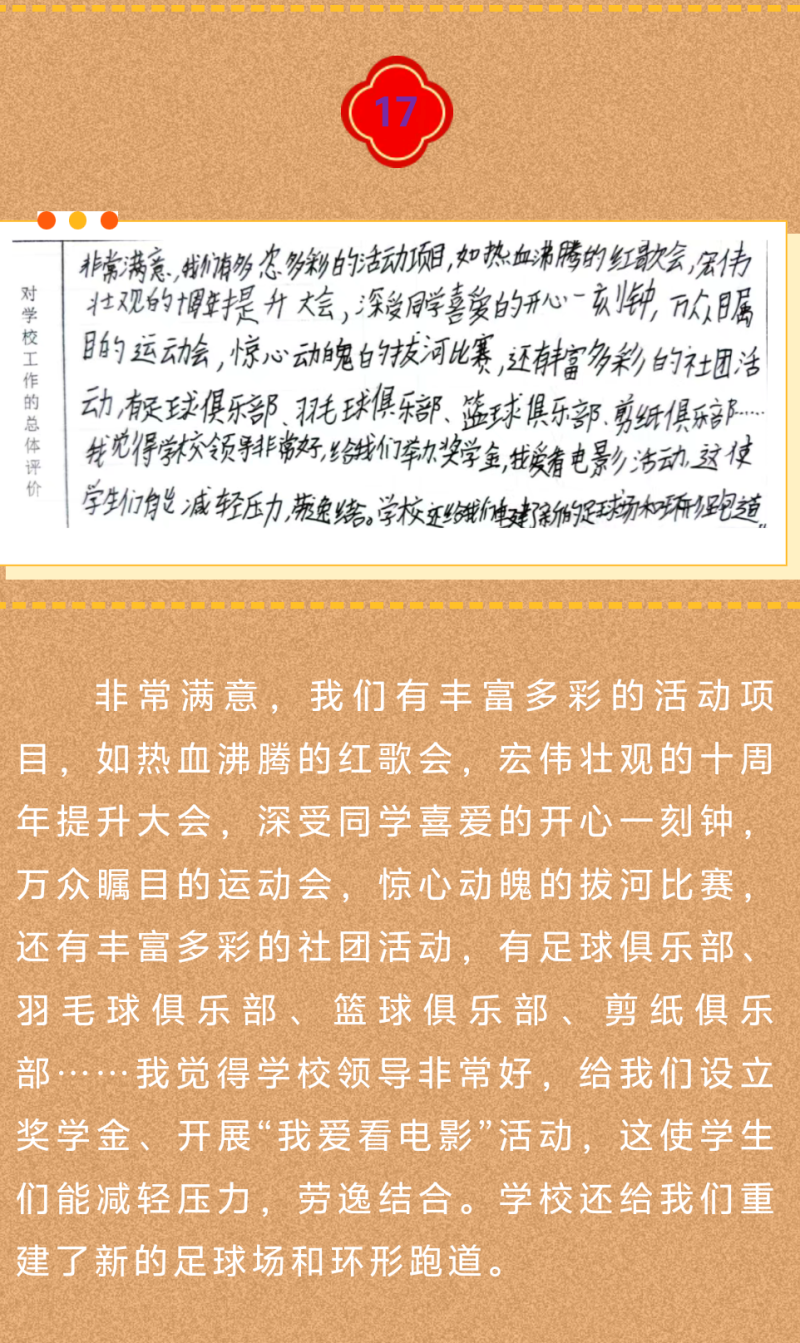 17
对学校工作的总体评价
非常满意,我们有多忽多彩的活动项目,如热血沸腾的红歌会,宏伟
壮观的十周年提升大会,深受同学喜爱的开心一刻钟,万众目属
目的运动会,惊心动魄的拔河比赛,还有丰富多彩的社团活
动,有足球俱乐部、羽毛球俱乐部、篮球俱乐部、剪纸俱乐部……
我觉得学校领导非常好,给我们举办奖学金,我爱看电影活动,这使
学生们能减轻压力,劳逸结合。学校还给我们重建了新的足球场和环形跑道。
非常满意，我们有丰富多彩的活动项
目，如热血沸腾的红歌会，宏伟壮观的十周
年提升大会，深受同学喜爱的开心一刻钟，
万众瞩目的运动会，惊心动魄的拔河比赛，
还有丰富多彩的社团活动，有足球俱乐部、
羽毛球俱乐部、篮球俱乐部、剪纸俱乐
部……我觉得学校领导非常好，给我们设立
奖学金、开展“我爱看电影”活动，这使学生
们能减轻压力，劳逸结合。学校还给我们重
建了新的足球场和环形跑道。